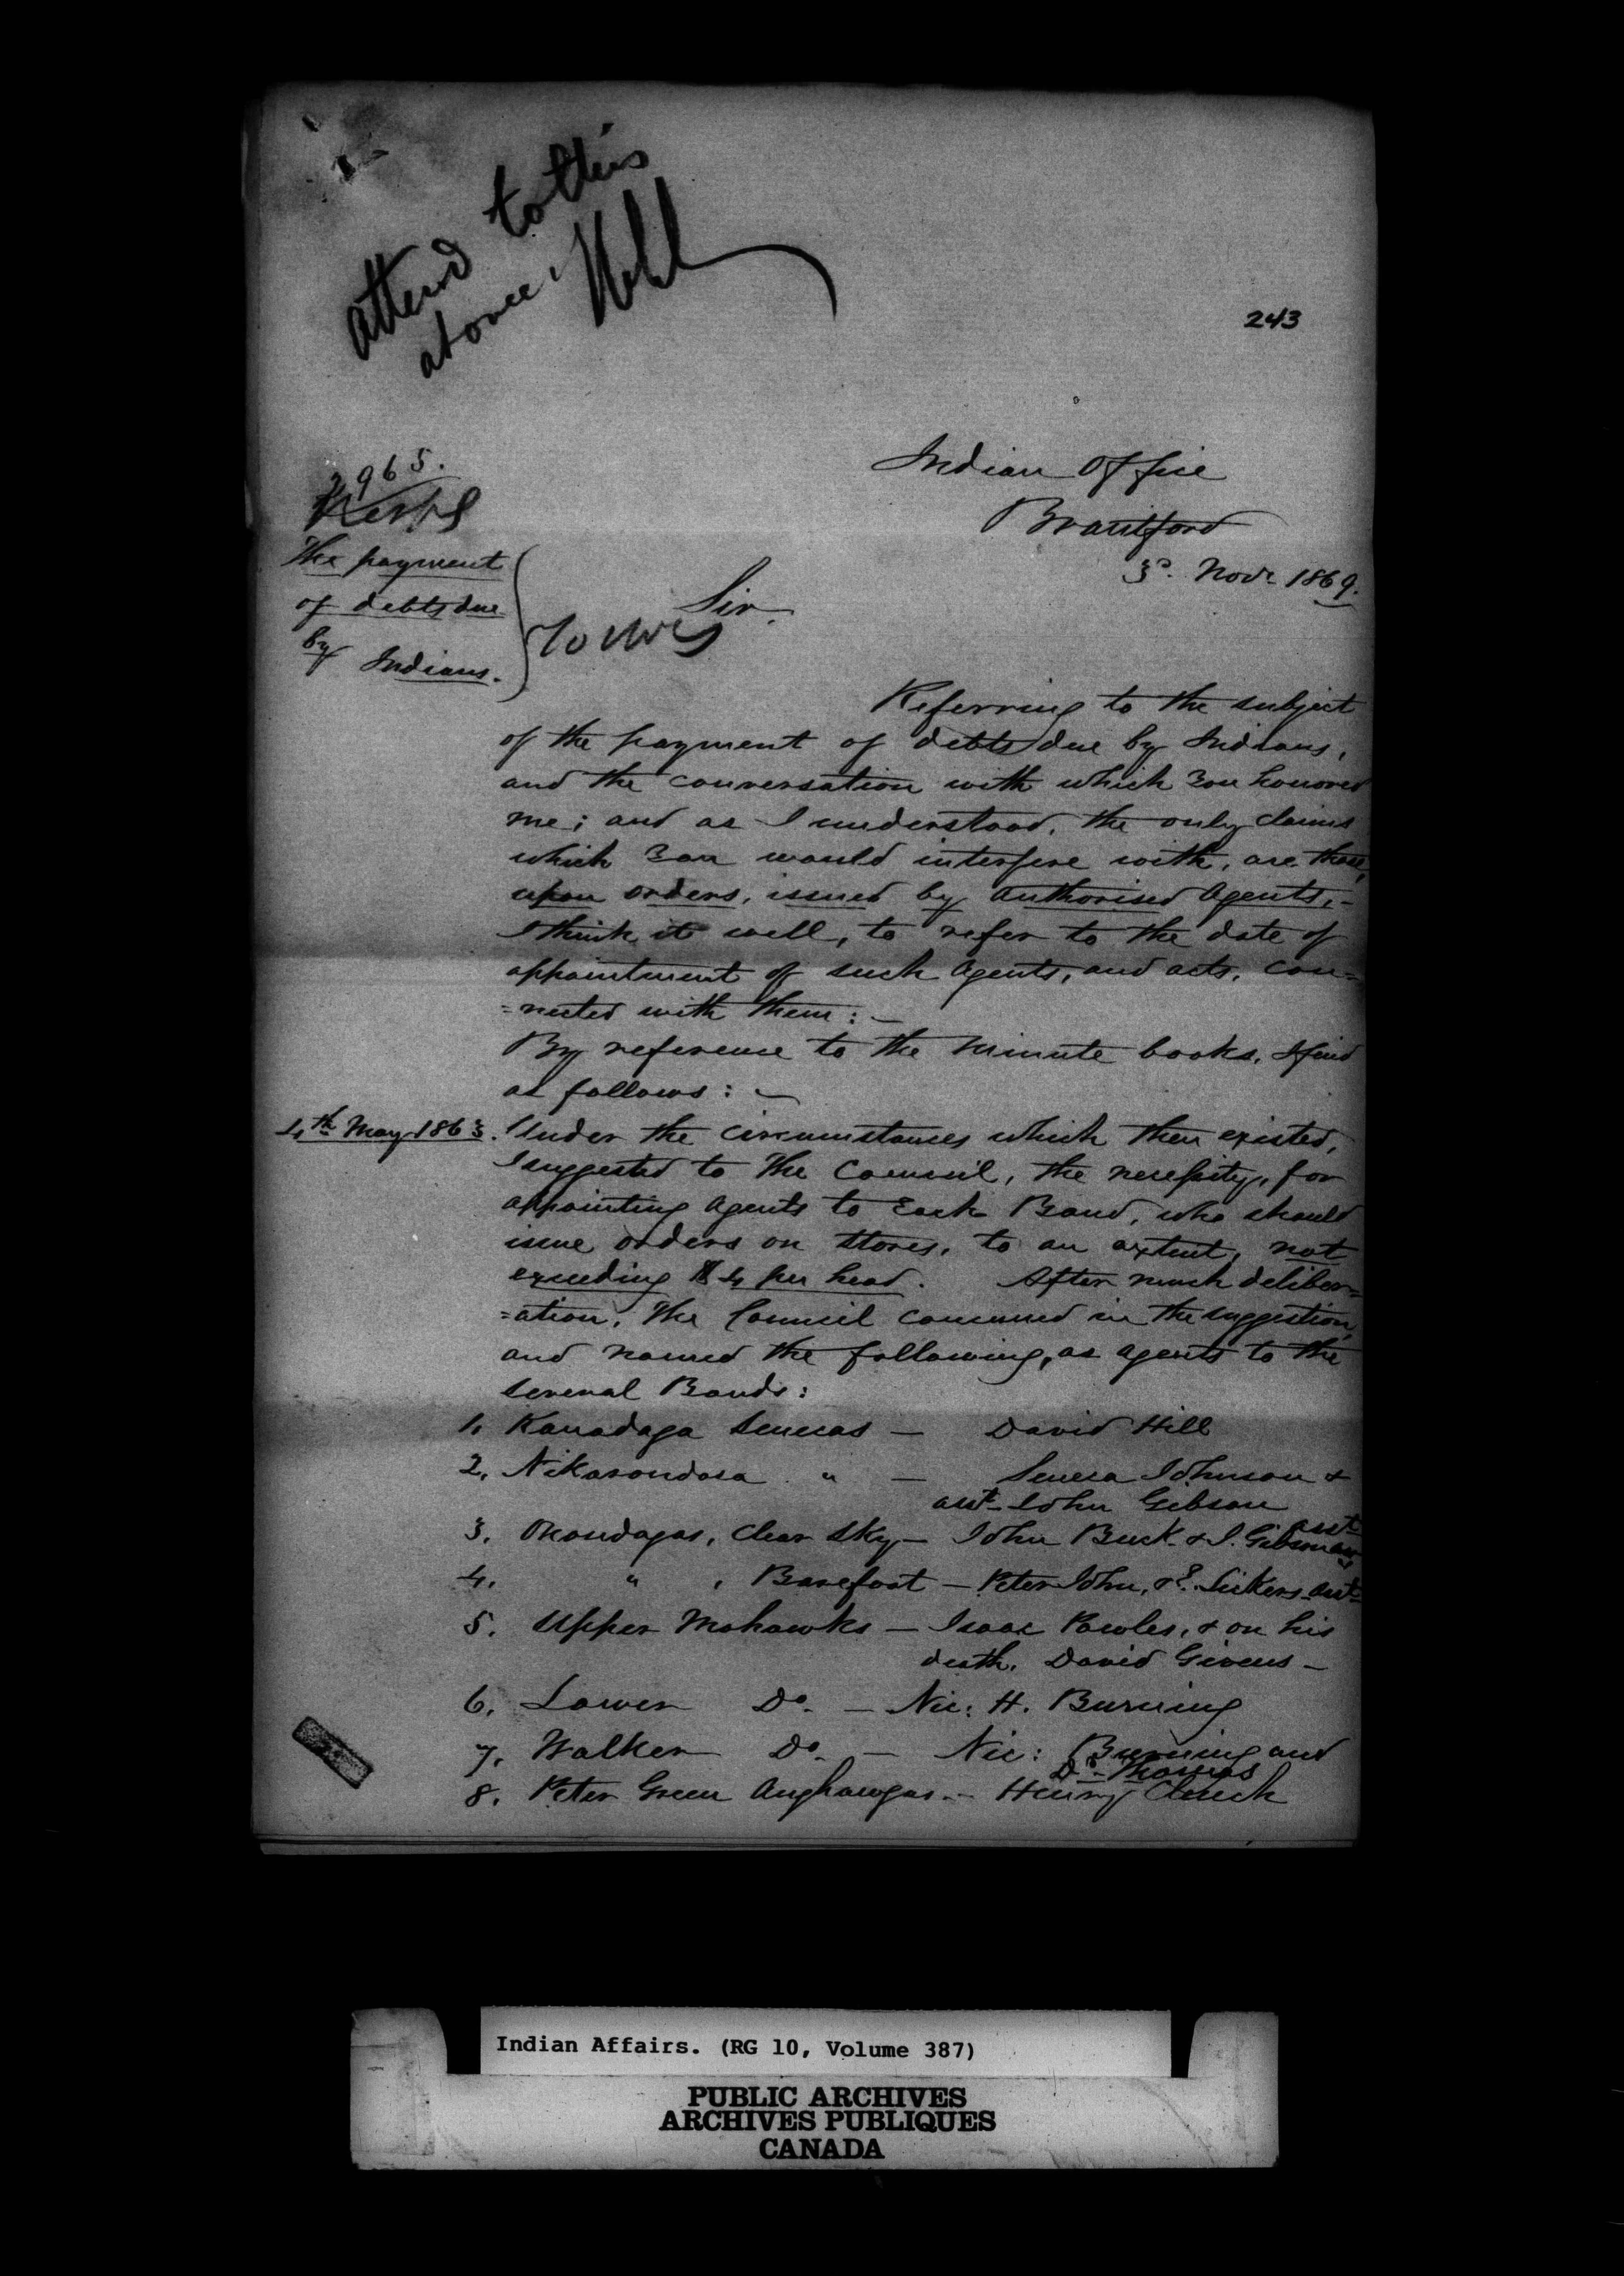 attend to this
at once
243
Indian Office
Brantford
3d. Novr. 1869.
2965.
Resp
The payment
of debts due
by Indians.
Sir.
Referring to the subject
of the payment of debts due by Indians,
and the conversation with which You honored
me; and as I understood, the only claims
which You would interfere with, are those,
upon orders, issued by authorised Agents,-
I think it well, to refer to the date of
appointment of such Agents, and acts, con=
=nected with them:-
By reference to the Minute books, I find
as follows:-
4th May 1863.
Under the circumstances which then existed,
I suggested to the Council, the necessity, for
appointing Agents to Each Band, who should
issue orders on Stores, to an extent, not
exceeding $4 per head. After much deliber=
=ation, The Council concurred in the suggestion,
and named the following, as agents to the
several Bands:
1. Kanadaga Senecas - David Hill
2. Nikarondasa " - Seneca Johnson &
asst. John Gibson
3. Onondagas, Clear Sky - John Buck & J. Gibson asst.
4. " , Barefoot - Peter John, & Sickers asst.
5. Upper Mohawks - Isaac Powles, & on his
death, David Givens -
6. Lower Do. - Nic: H. Burning
7. Walker Do. - Nic: Burning and
D. Thomas
8. Peter Green Aughawgas. - Henry Clench
Indian Affairs. (RG 10, Volume 387)
PUBLIC ARCHIVES
ARCHIVES PUBLIQUES
CANADA